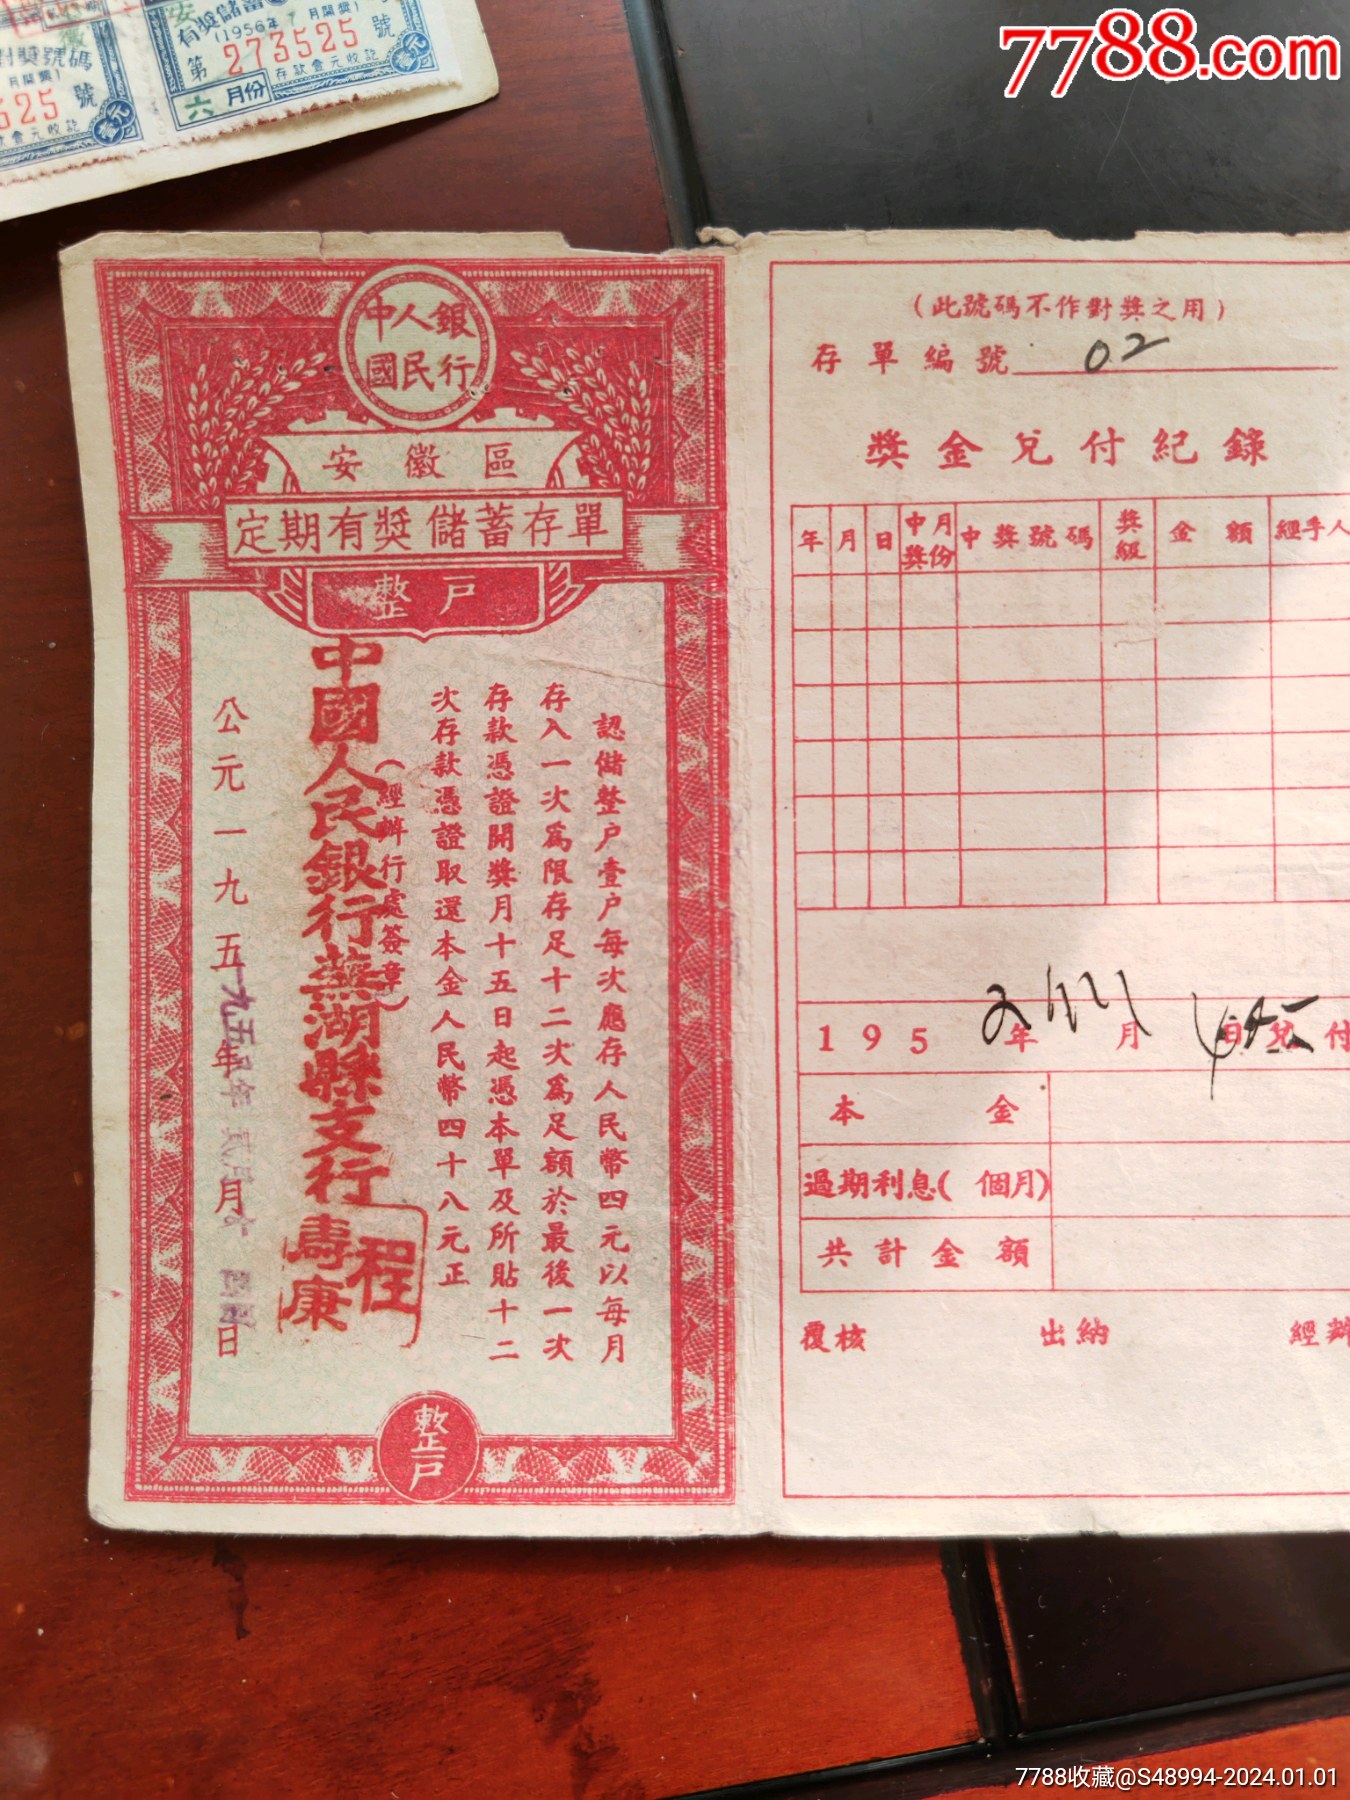 7788.com
對獎號碼
月開獎)
525 號
壹元
款會元收訖
有獎儲蓄
(1956年7月開獎)
第 273525 號
存款會元收訖
壹元
六 月份
中國人民銀行
安徽區
定期有獎儲蓄存單
整戶
認儲整戶壹戶每次應存人民幣四元以每月
存入一次為限存足十二次為足額於最後一次
存款憑證開獎月十五日起憑本單及所貼十二
次存款憑證取還本金人民幣四十八元正
(經辦行處簽章)
中國人民銀行蕪湖縣支行
程壽康
公元一九五 年 月 日
整戶
(此號碼不作對獎之用)
存單編號 02
獎金兌付紀錄
年 月 日 中獎月份 中獎號碼 獎級 金額 經手人
195 年 月 日兌付
本金
過期利息( 個月)
共計金額
覆核 出納 經辦
7788收藏@S48994-2024.01.01